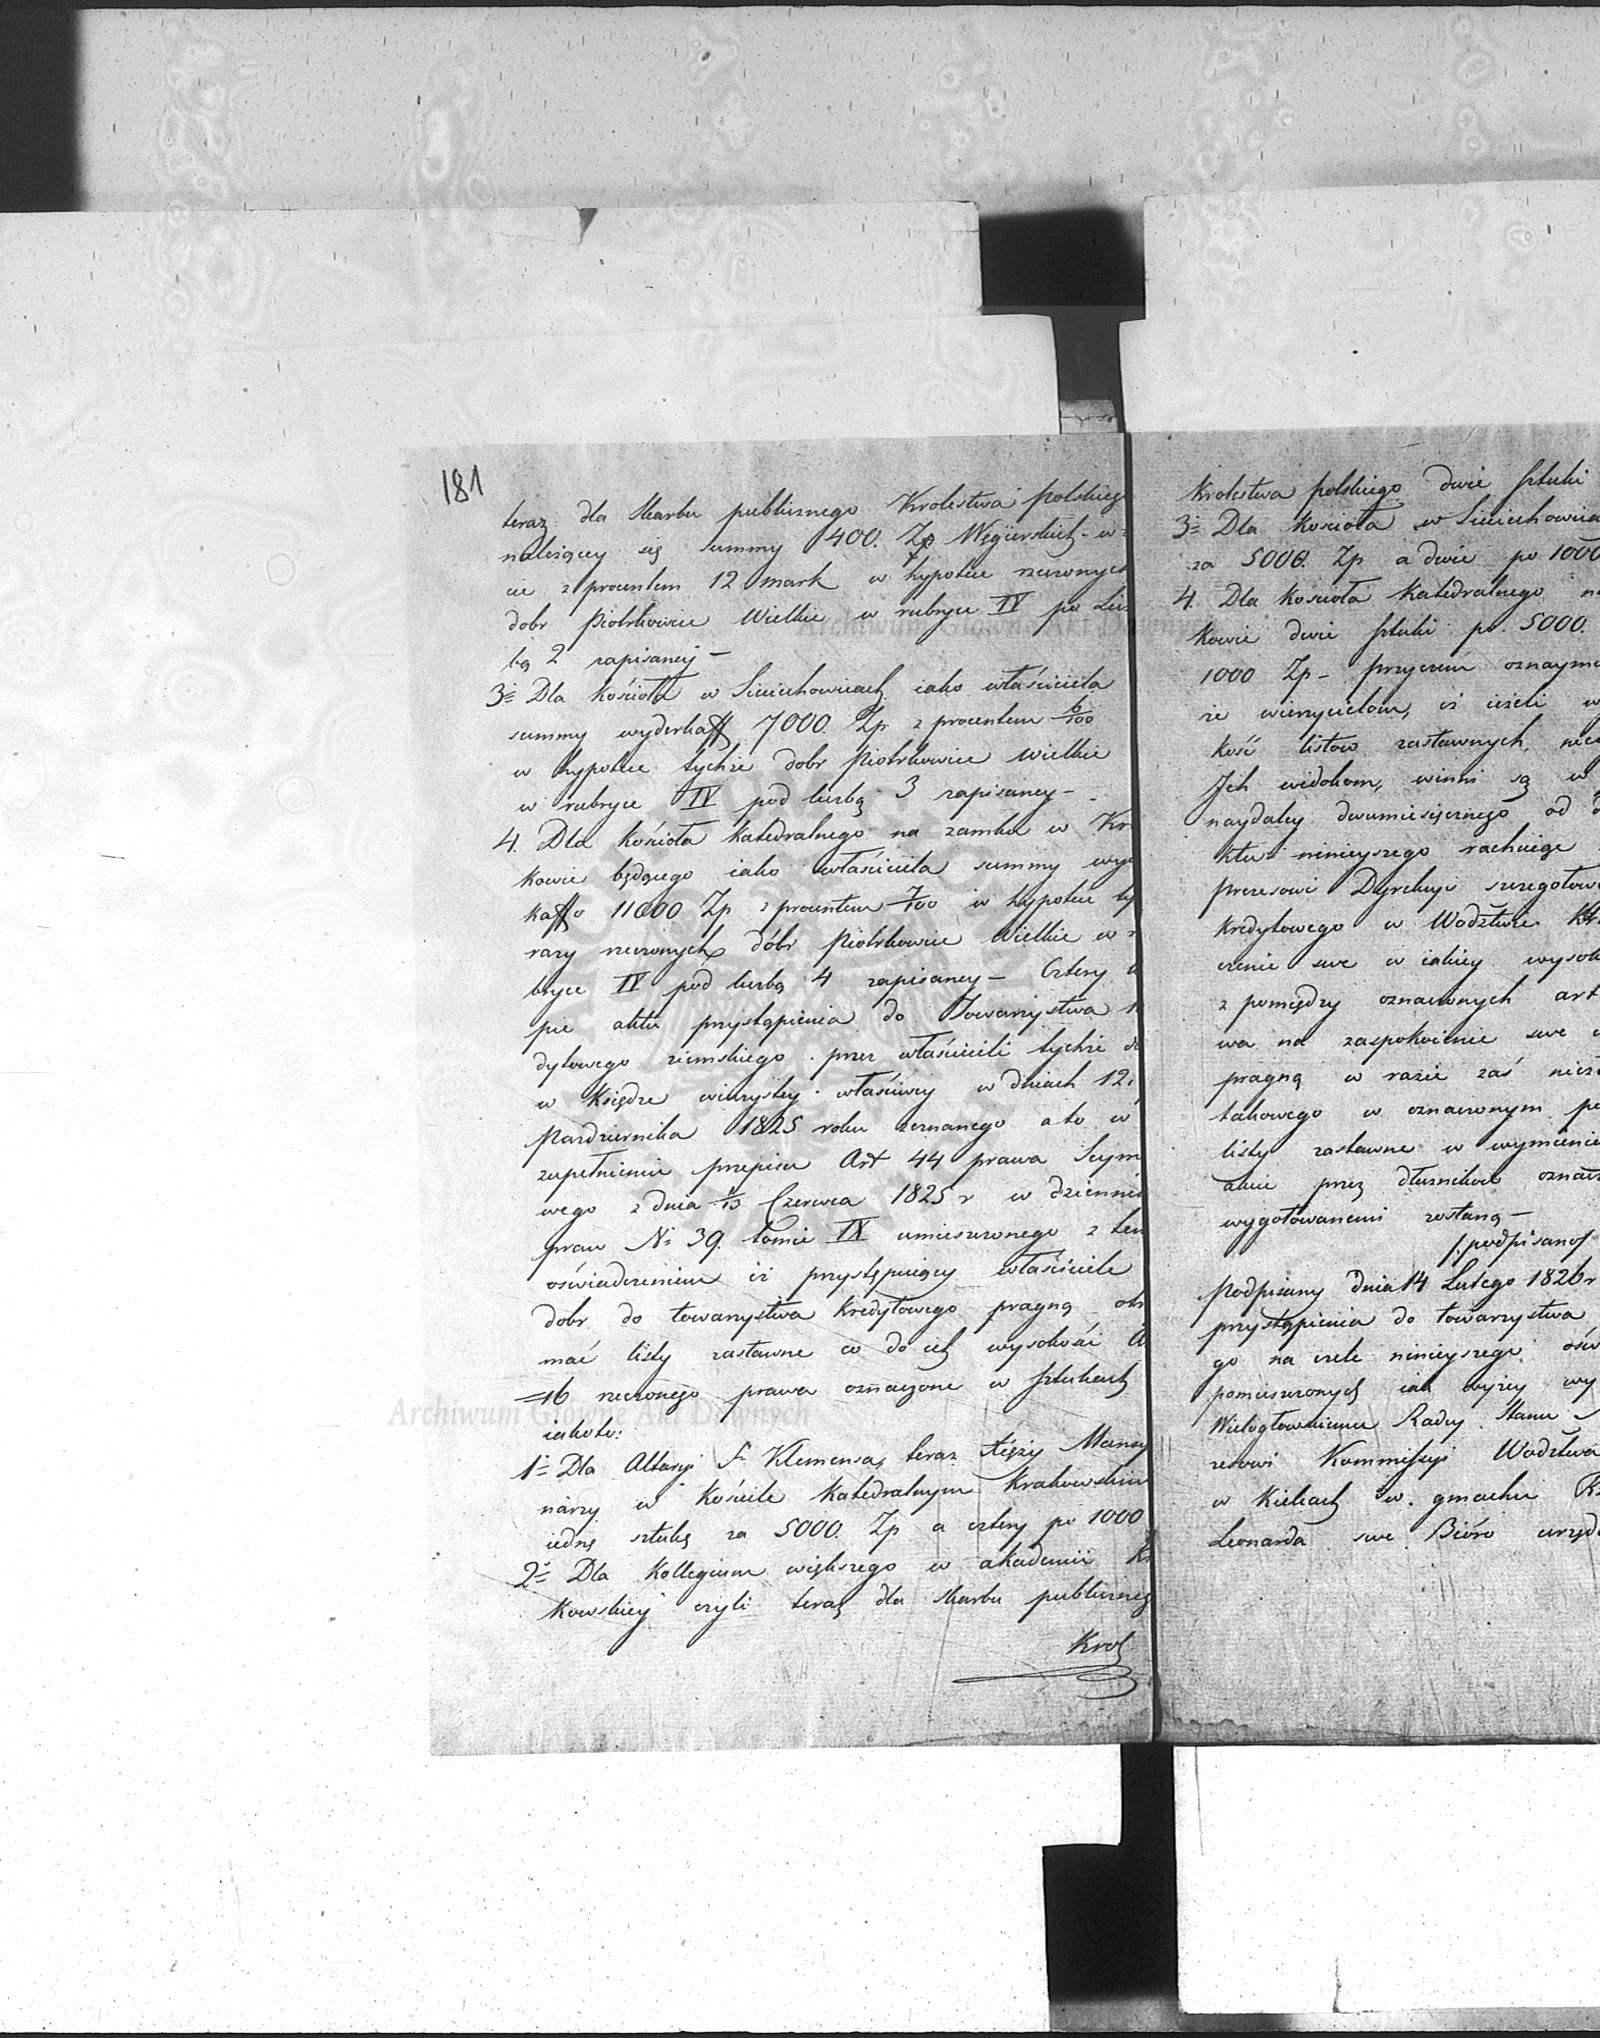 181
teraz dla Skarbu publicznego Krolestwa polskieg
należącey się summy 400. Zp Węgierskich w
cie z procentem 12 mark w hypotece rzeczonych
dobr Piotrkowice Wielkie w rubryce IV po Licz
bą 2 zapisaney –
3 Dla kościoła w Sieciechowicach iako właściciela
summy wyderkaff 7000. Zp z procentem 6/100
w hypotece tychże dobr Piotrkowice Wielkie
w rubryce IV pod liczbą 3 zapisaney –
4. Dla kościoła katedralnego na zamku w Kra
kowie będącego iako właściciela summy wyd
kaffo 11000 Zp z procentem 7/100 w hypotece ty
razy rzeczonych dóbr Piotrkowice Wielkie w r
bryce IV pod liczbą 4 zapisaney – Cztery
pie aktu przystąpienia do Towarzystwa
dytowego ziemskiego przez właścicieli tychże
w Księdze wieczystey właściwey w dniach 12
Pazdziernika 1825 roku zeznanego a to w
zupełnieniu przepisu Art 44 prawa Seym
wego z dnia 1/13 Czerwca 1825 r w dzienni
praw N 39. tomie IX umieszczonego z tem
oświadczeniem iż przystępuiący właściciele
dobr do towarzystwa kredytowego pragną otr
mać listy zastawne co do ich wysokości
16 rzeczonego prawa oznaczone w sztukach
iakoto:
1 Dla Altaryi S Klemensa, teraz Xięży Mansy
narzy w Kościele Katedralnym Krakowskim
iedną sztukę za 5000. Zp a cztery po 1000
2 Dla Kollegium większego w akademii Kr
kowskiey czyli teraz dla skarbu publiczneg
Krol
Krolestwa polskiego dwie sztuki
3 Dla Kościoła w Sieciechowica
za 5000. Zp a dwie po 1000
4. Dla Kościoła Katedralnego na
kowie dwie sztuki po 5000.
1000 Zp – przyczem oznaym
że wierzycielom, iż ieżeli w
kość listow zastawnych, nie
Ich widokom, winni są w
naydaley dwumiesięcznego od d
ktu ninieyszego rachuiąc
prezesowi Dyrekcyi szczegołow
Kredytowego w Wodztwie Kr
czenie swe w iakiey wysok
z pomiędzy oznaczonych art
wa na zaspokoienie swe
pragną w razie zaś nie
takowego w oznaczonym
listy zastawne w wymienie
akcie przez dłużnikow oznac
wygotowanemi zostaną –
/. podpisano/
Podpisany dnia 14 Lutego 1826 r
przystąpienia do towarzystwa
go na czele ninieyszego ośw
pomieszczonych iak wyżey wy
Wielogłowskiemu Radcy Stanu
zesowi Kommissyi Wodztwa
w Kielcach w gmachu
Leonarda swe Bióro urzęd
Archiwum Główne Akt Dawnych
Archiwum Główne Akt Dawnych